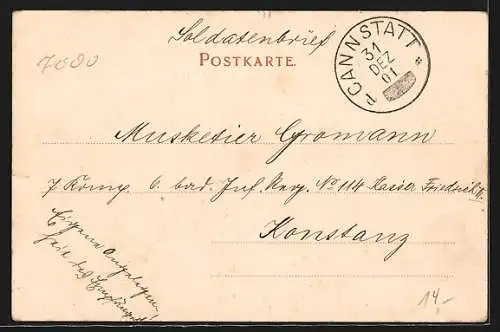 Soldatenbrief
7000
POSTKARTE.
CANNSTATT
31
DEZ
01
Musketier Gromann
7 Komp 6. bad. Inf. Reg. No 114 Kaiser Friedrich
Konstanz
Eigene Angelegen
heit des Empfängers
14.-